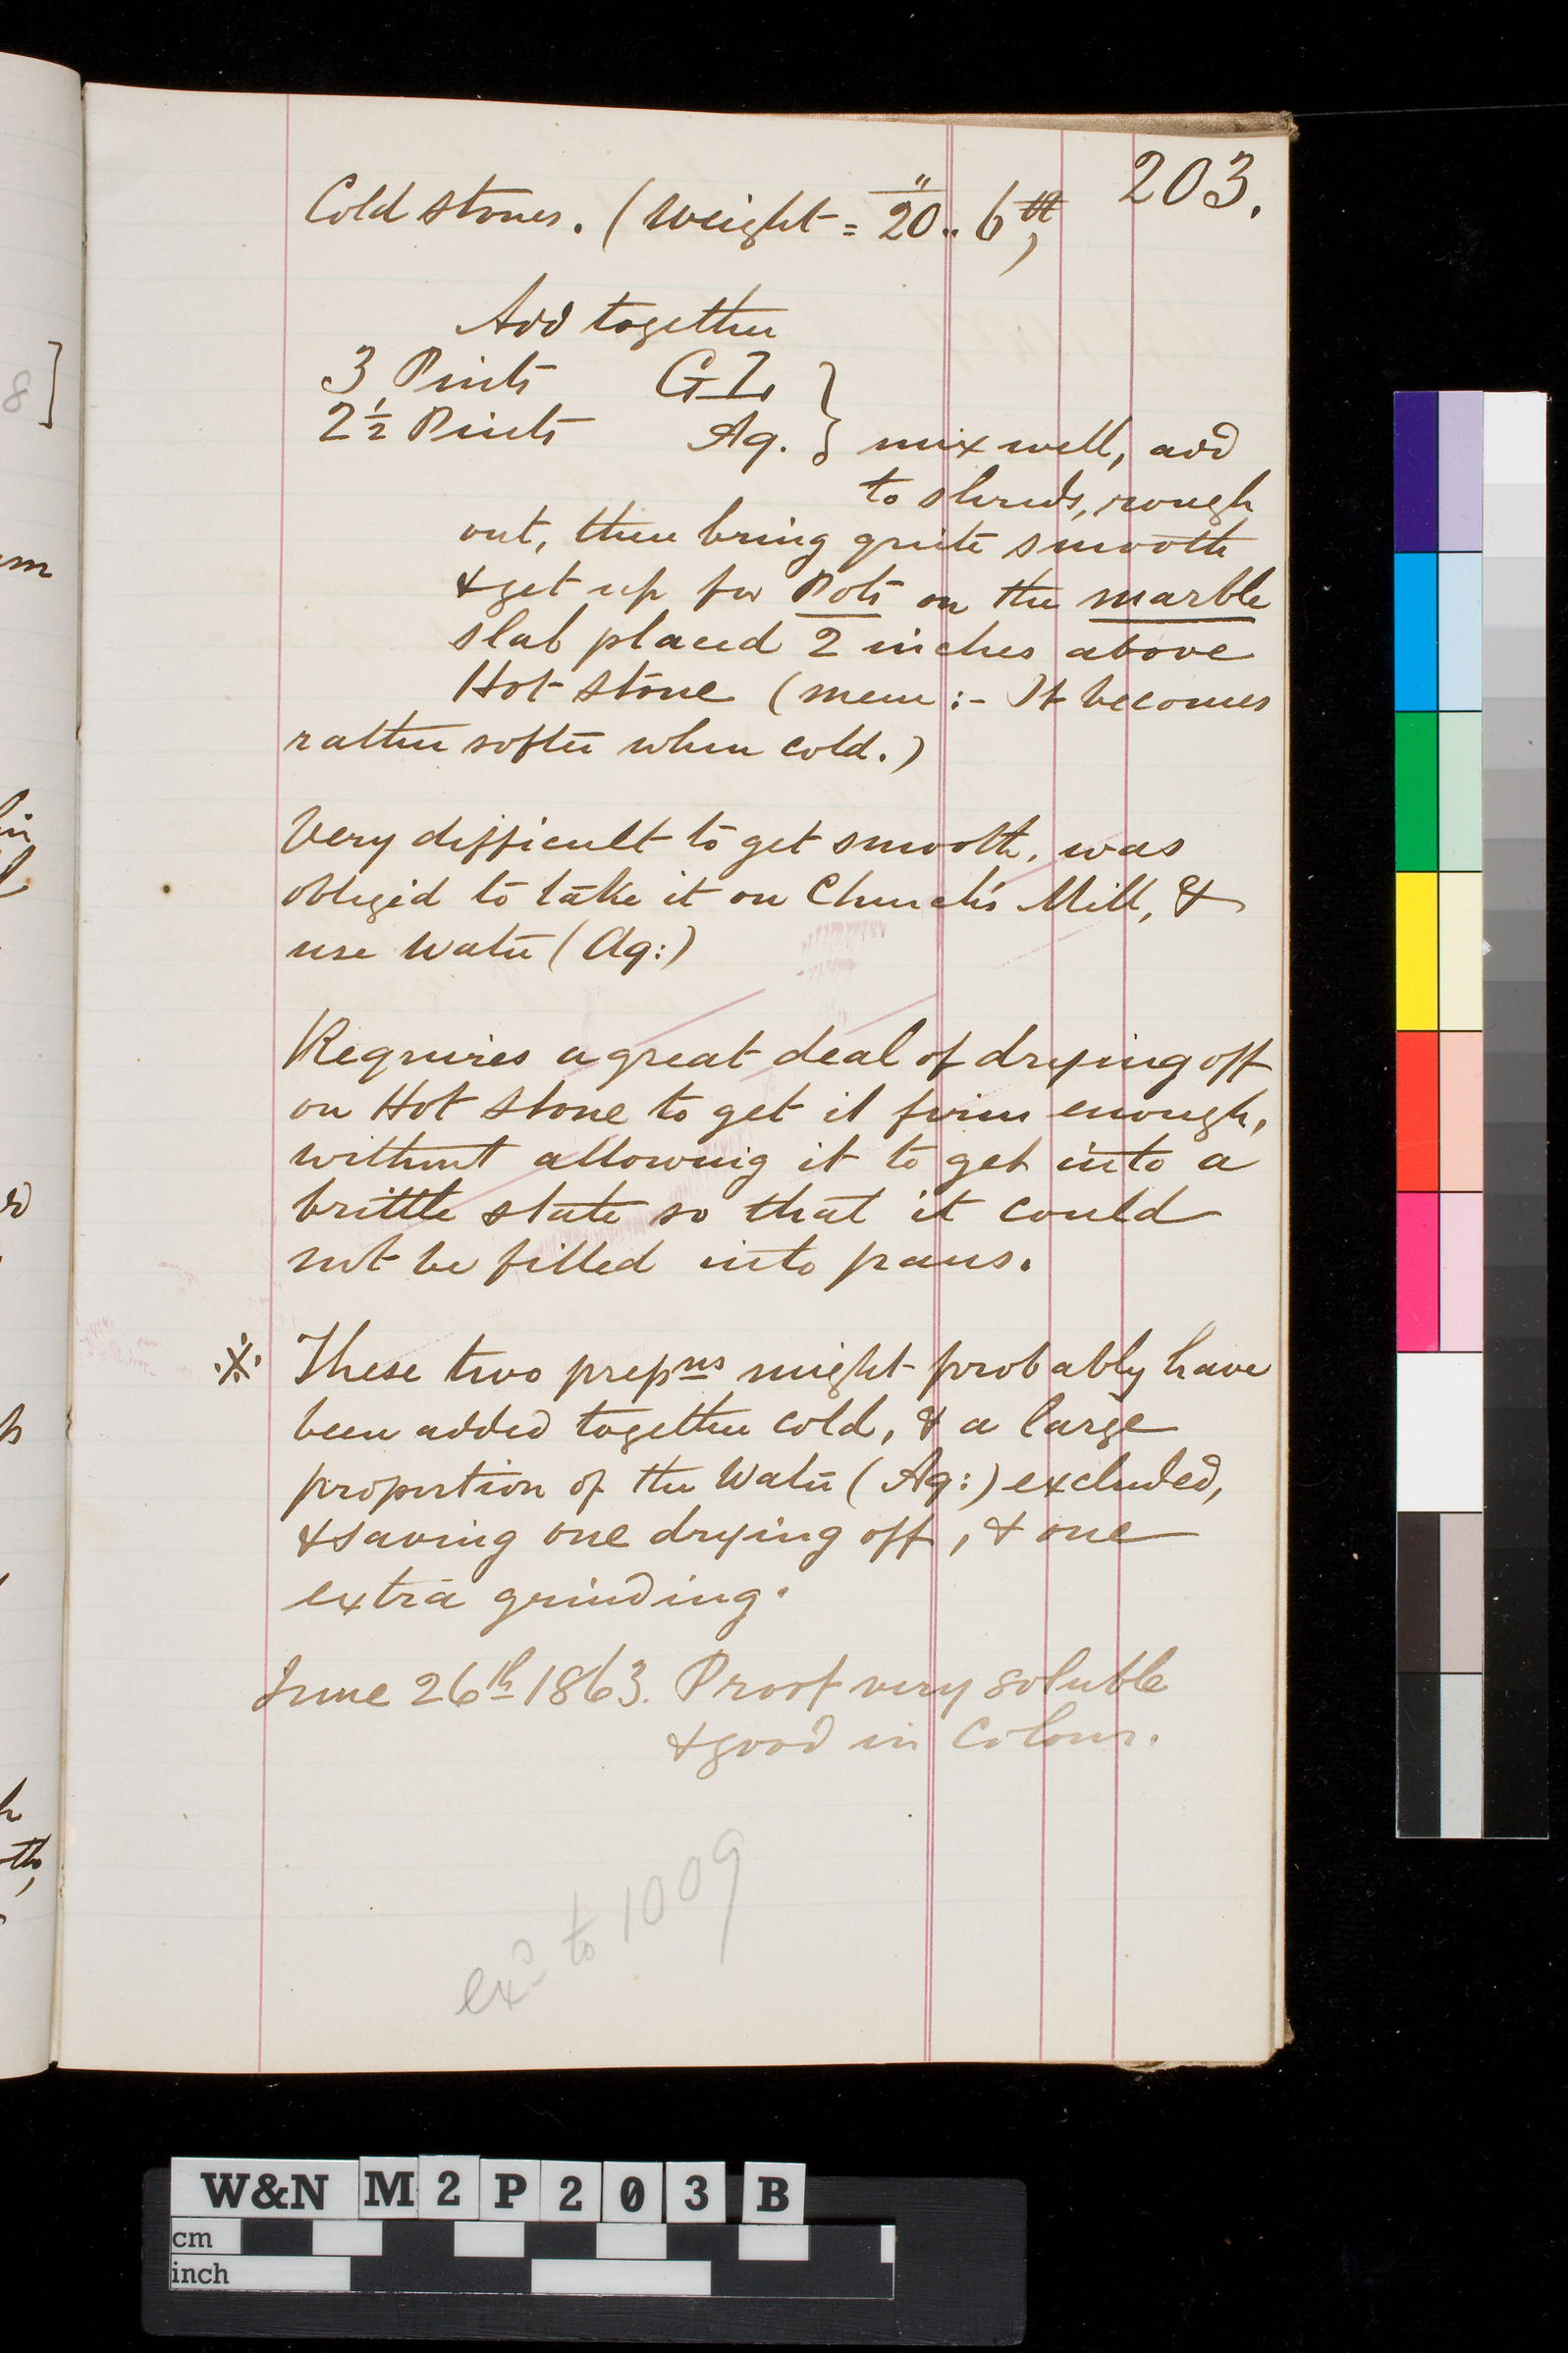 203.
Cold stones. (Weight = 20 .. 6 ℔)
Add together
3 Pints GL }
2½ Pints Aq. } mix well, add
to shreds, rough
out, then bring quite smooth
& get up for Pots on the marble
slab placed 2 inches above
Hot stone (mem :- It becomes
rather softer when cold.)
Very difficult to get smooth, was
obliged to take it on Church's Mill, &
use Water (Aq:)
Requires a great deal of drying off
on Hot stone to get it firm enough,
without allowing it to get into a
brittle state so that it could
not be filled into pans.
※ These two prepns might probably have
been added together cold, & a large
proportion of the Water (Aq:) excluded,
& saving one drying off, & one
extra grinding.
June 26th 1863. Proof very soluble
& good in Colour.
exd to 1009
8]
m
W&N M 2 P 2 0 3 B
cm
inch